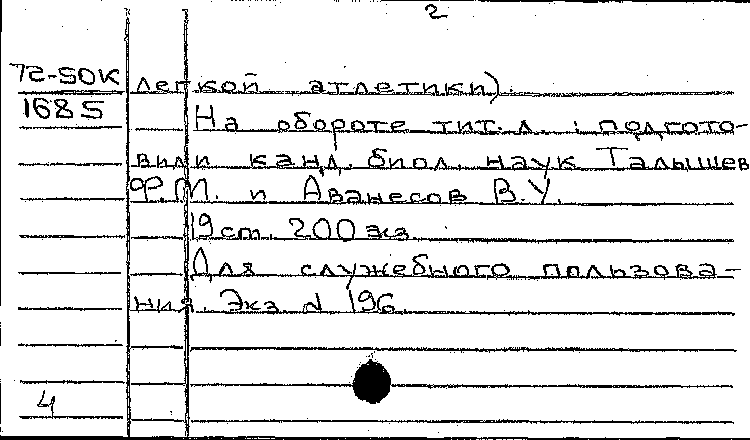 2
72-SOK легкой атлетики).
1685 На обороте тит. л. : подгото-
вили канд. биол. наук Талышев
Ф.М. и Аванесов В.У.
19 ст. 200 экз.
Для служебного пользова-
ния. Экз. N 196.
4